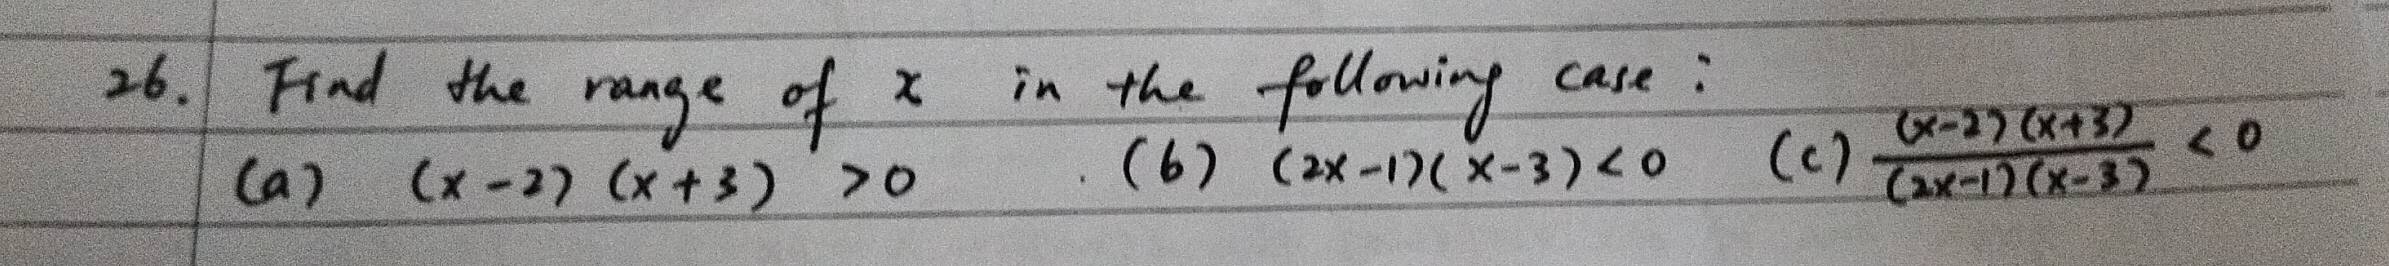 26. Find the range of x in the following case :
(a) (x-2) (x+3) >0 . (b) (2x-1)(x-3)<0 (c) \frac{(x-2)(x+3)}{(2x-1)(x-3)} < 0